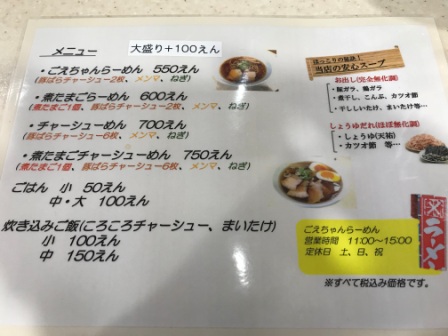 メニュー
大盛り+100えん
・ごえちゃんらーめん 550えん
(豚ばらチャーシュー2枚、メンマ、ねぎ)
・煮たまごらーめん 600えん
(煮たまご1個、豚ばらチャーシュー2枚、メンマ、ねぎ)
・チャーシューめん 700えん
(豚ばらチャーシュー6枚、メンマ、ねぎ)
・煮たまごチャーシューめん 750えん
(煮たまご1個、豚ばらチャーシュー6枚、メンマ、ねぎ)
ごはん 小 50えん
中・大 100えん
炊き込みご飯(ころころチャーシュー、まいたけ)
小 100えん
中 150えん
当店の安心スープ
お出し(完全無化調)
・豚ガラ、鶏ガラ
・煮干し、こんぶ、カツオ節
・干ししいたけ、まいたけ等…
しょうゆだれ(ほぼ無化調)
・しょうゆ(天祐)
・カツオ節 等…
ごえちゃんらーめん
営業時間 11:00～15:00
定休日 土、日、祝
ラーメン
※すべて税込み価格です。